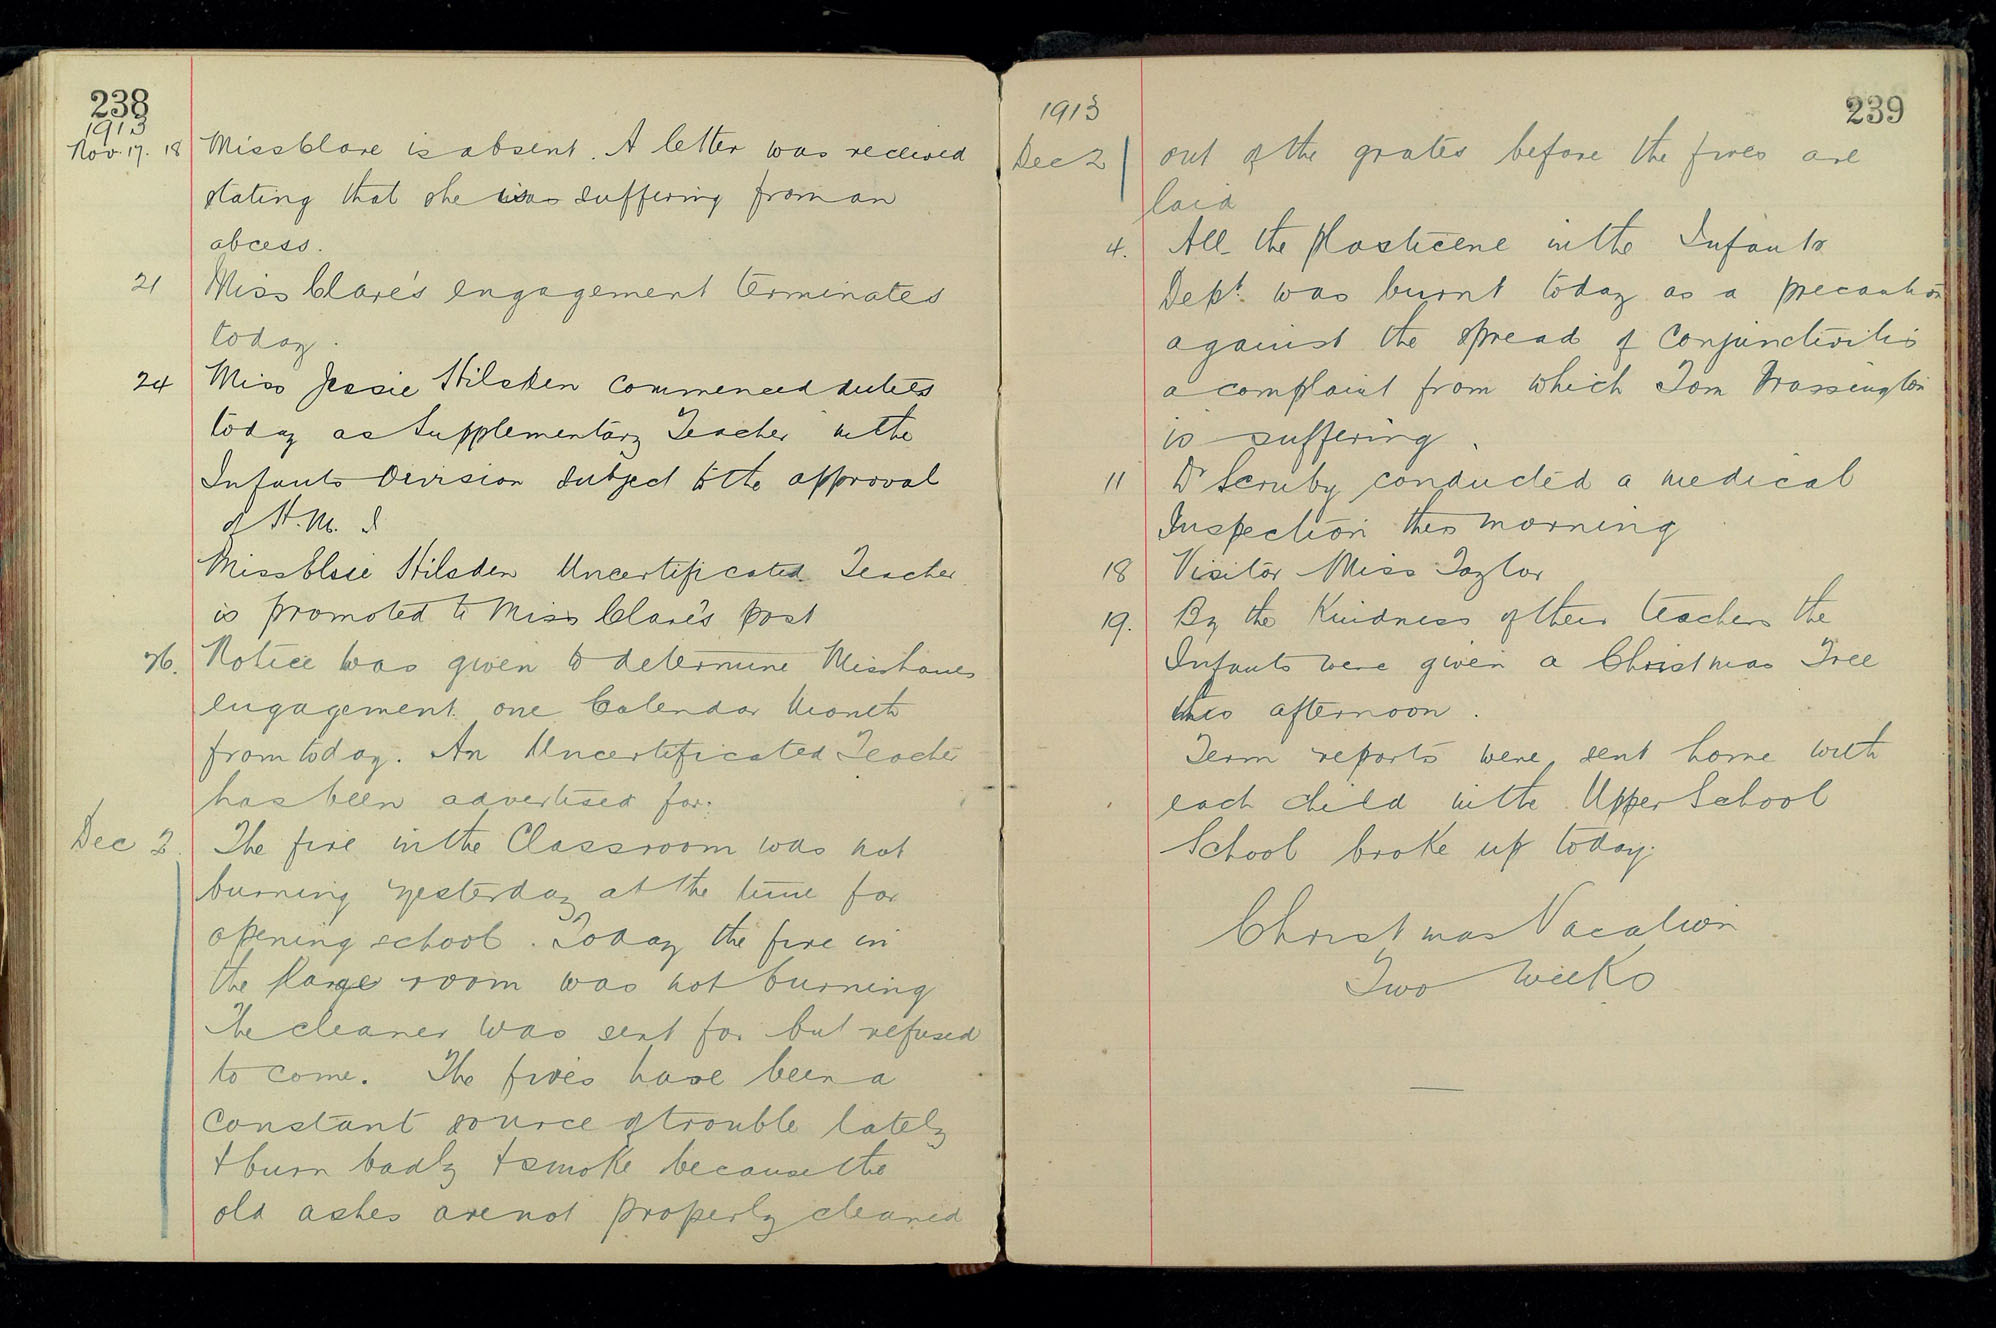 238
1913
Nov. 17. 18 Miss Clare is absent. A letter was received
stating that she was suffering from an
abcess.
21 Miss Clare's engagement terminates
today.
24 Miss Jessie Hilsden commenced duties
today as Supplementary Teacher in the
Infants Division subject to the approval
of H. M. I
Miss Elsie Hilsden Uncertificated Teacher
is promoted to Miss Clare's post
26. Notice was given to determine Miss
engagement one Calendar Month
from today. An Uncertificated Teacher
has been advertised for.
Dec 2. The fire in the Classroom was not
burning yesterday at the time for
opening school. Today the fire in
the large room was not burning
The cleaner was sent for but refused
to come. The fires have been a
constant source of trouble lately
& burn badly & smoke because the
old ashes are not properly cleaned
239
1913
Dec 2 out of the grates before the fires are
laid
4. All the plasticene in the Infants
Dept. was burnt today as a precaution
against the spread of Conjunctivitis
a complaint from which Tom Brassington
is suffering.
11 Dr Scruby conducted a medical
Inspection this morning
18 Visitor Miss Taylor
19. By the Kindness of their teachers the
Infants were given a Christmas Tree
this afternoon.
Term reports were sent home with
each child in the Upper School
School broke up today.
Christmas Vacation
Two Weeks